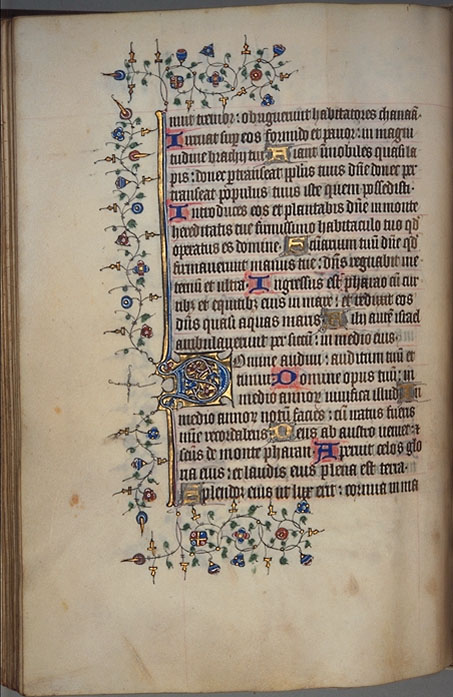 nuit tremor : obriguerunt habitatores chanaā.
Irruat suꝑ eos formido et pavor : in magni
tudine brachij tui. Fiant immobiles quasi la
pis : donec ꝑtranseat ꝑplus tuus dn̄e donec ꝑ
transeat populus tuus iste quem possedisti.
Introduces eos et plantabis dn̄e in monte
hereditatis tue firmissimo habitaculo tuo qd̄
operatus es domine. Sc̄uarium tuū dn̄e qd̄
firmaverunt manus tue : dn̄s regnabit ine
ternū et ultra. Ingressus est pharao cū cur
ribꝫ et equitibꝫ eius in mare : et reduxit eos
dn̄s quasi aquas maris. Filij autē israel
ambulaverunt per siccū : in medio eius.
Domine audivi : auditum tuū et
timui. Domine opus tuū : in
medio annoꝝ vivifica illud. In
medio annoꝝ notū facies : cū iratus fueris
mīe recordaberis. Deus ab austro veniet : et
sc̄us de monte pharan. Aperuit celos glo
ria eius : et laudis eius plena est terra.
Splendor eius ut lux erit : cornua in ma